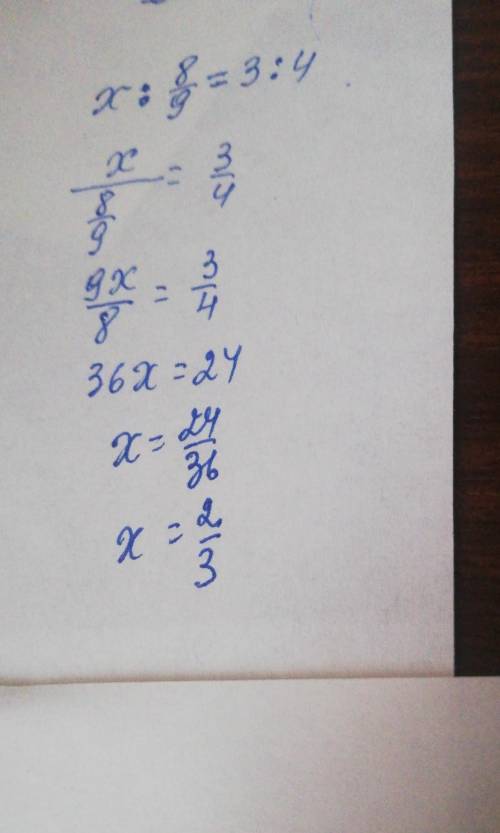 x : 8/9 = 3 : 4
x/(8/9) = 3/4
9x/8 = 3/4
36x = 24
x = 24/36
x = 2/3